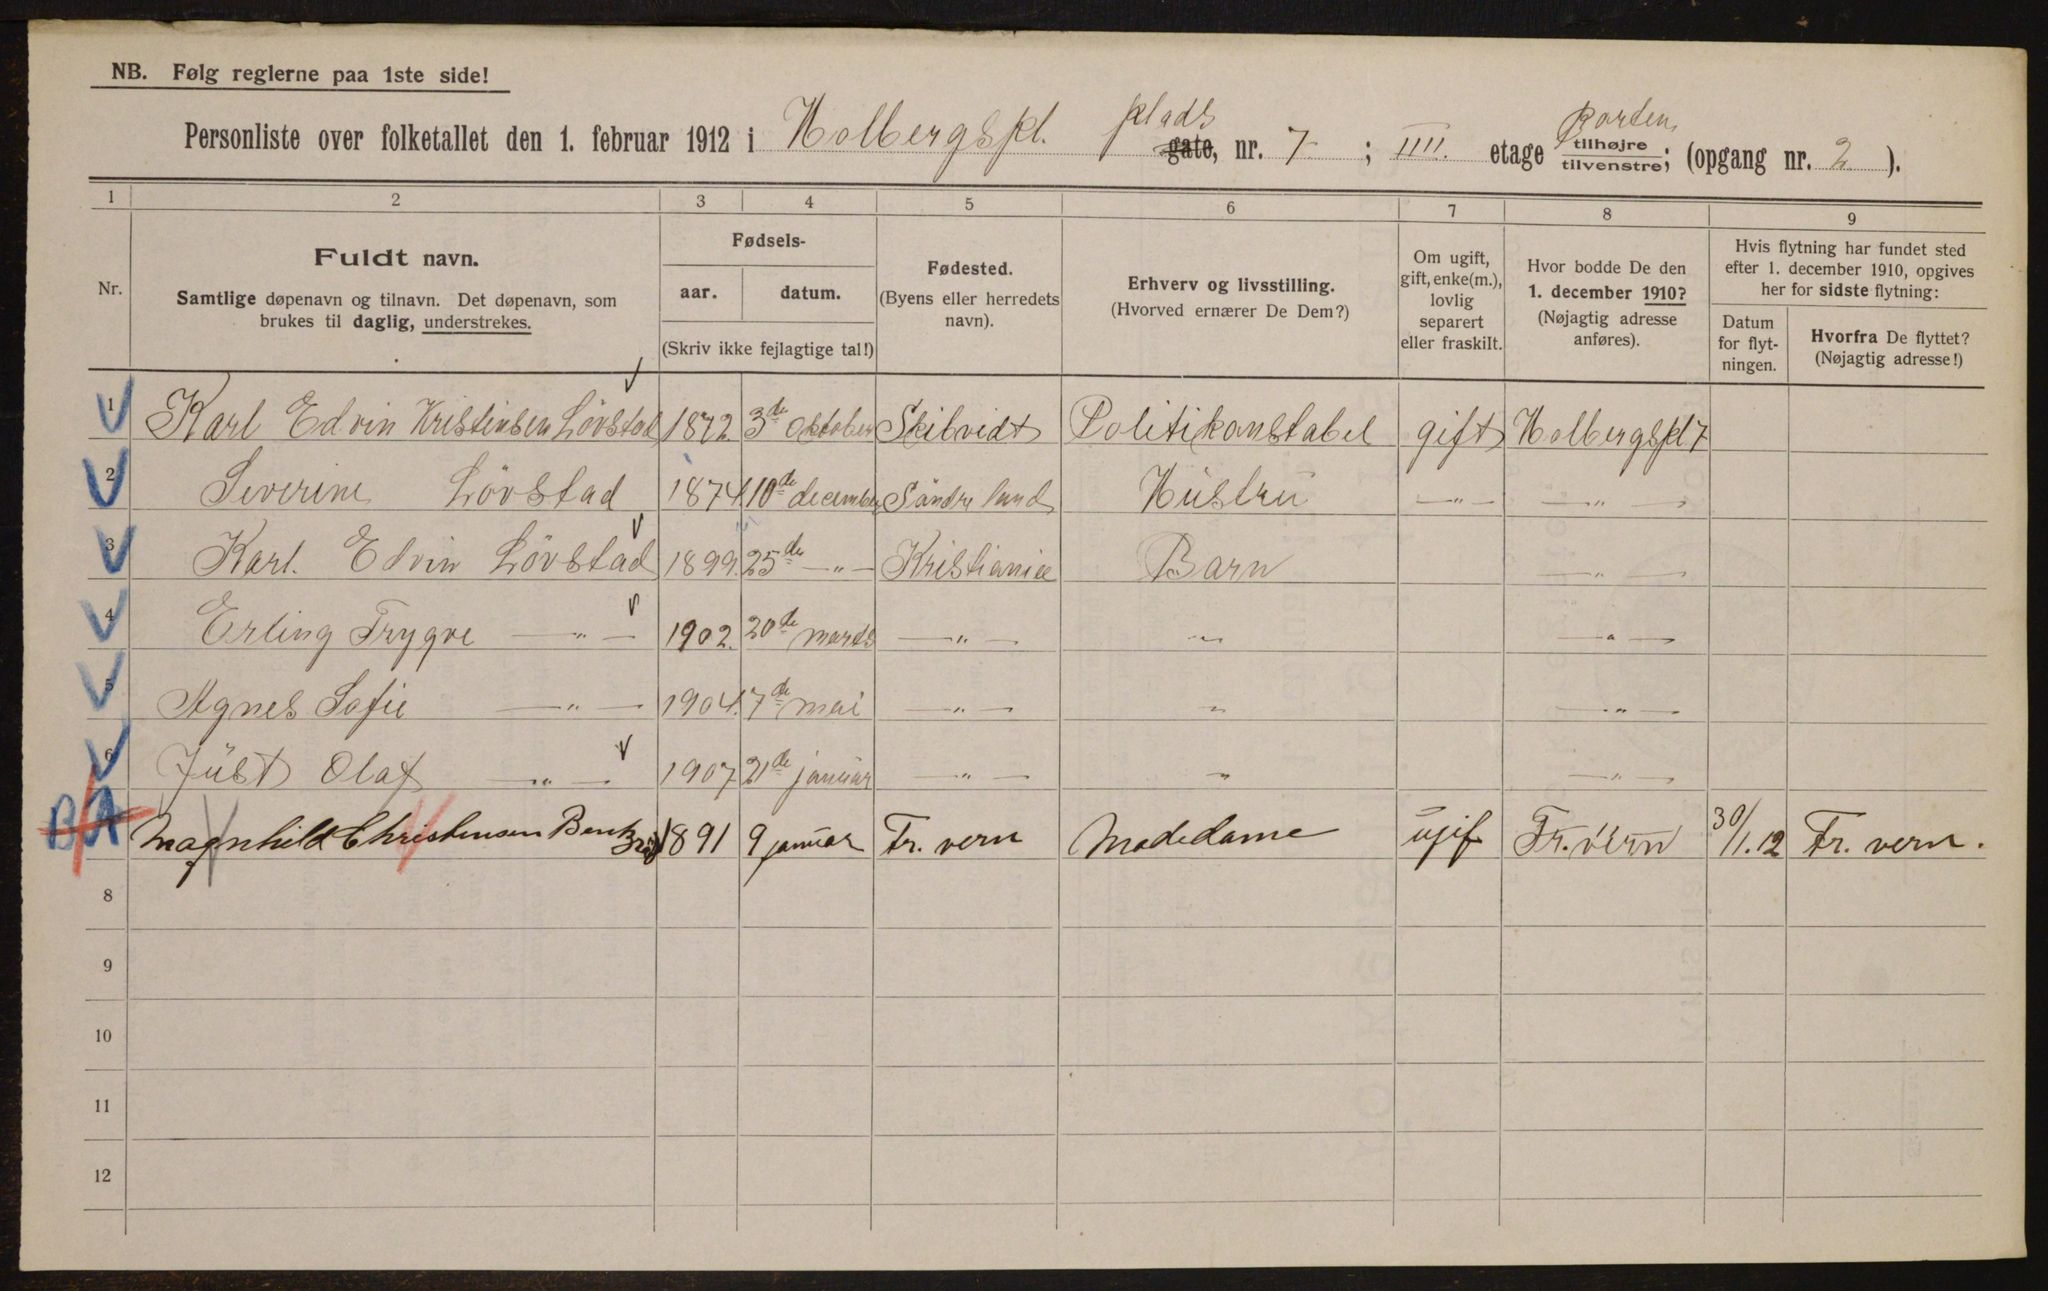 NB. Følg reglerne paa 1ste side!
Personliste over folketallet den 1. februar 1912 i Holbergspl. plads gate, nr. 7 ; IIII. etage Porten tilhøjre tilvenstre; (opgang nr. 2 ).
1 2 3 4 5 6 7 8 9
Nr.
Fuldt navn.
Samtlige døpenavn og tilnavn. Det døpenavn, som
brukes til daglig, understrekes.
Fødsels-
aar. datum.
(Skriv ikke fejlagtige tal!)
Fødested.
(Byens eller herredets
navn).
Erhverv og livsstilling.
(Hvorved ernærer De Dem?)
Om ugift,
gift, enke(m.),
lovlig
separert
eller fraskilt.
Hvor bodde De den
1. december 1910?
(Nøjagtig adresse
anføres).
Hvis flytning har fundet sted
efter 1. december 1910, opgives
her for sidste flytning:
Datum
for flyt-
ningen.
Hvorfra De flyttet?
(Nøjagtig adresse!)
1 Karl Edvin Kristensen Lövstad 1872 3de Oktober Skibvidt Politikonstabel gift Holbergspl 7
2 Severine Lövstad 1874. 10de december Söndre land Hüstrü —"— —"—
3 Karl. Edvin Lövstad 1899. 25de —"— Kristiania Barn —"—
4 Erling Trygve —"— 1902. 20de marts —"— " —"—
5 Agnes Sofie —"— 1904. 7de mai —"— " —"—
6 Jüst Olaf —"— 1907 21de januar —"— " —"—
BA Magnhild Christensen 1891 9 januar Fr. vern Modedame ugif Fr. vern 30/1.12 Fr. vern.
8
9
10
11
12